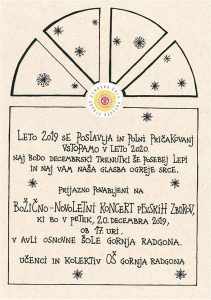 LETO 2019 SE POSLAVLJA IN POLNI PRIČAKOVANJ
VSTOPAMO V LETO 2020.
NAJ BODO DECEMBRSKI TRENUTKI ŠE POSEBEJ LEPI
IN NAJ VAM NAŠA GLASBA OGREJE SRCE.
PRIJAZNO POVABLJENI NA
BOŽIČNO-NOVOLETNI KONCERT PEVSKIH ZBOROV,
KI BO V PETEK, 20. DECEMBRA 2019,
OB 17. URI,
V AVLI OSNOVNE ŠOLE GORNJA RADGONA.
UČENCI IN KOLEKTIV OŠ GORNJA RADGONA